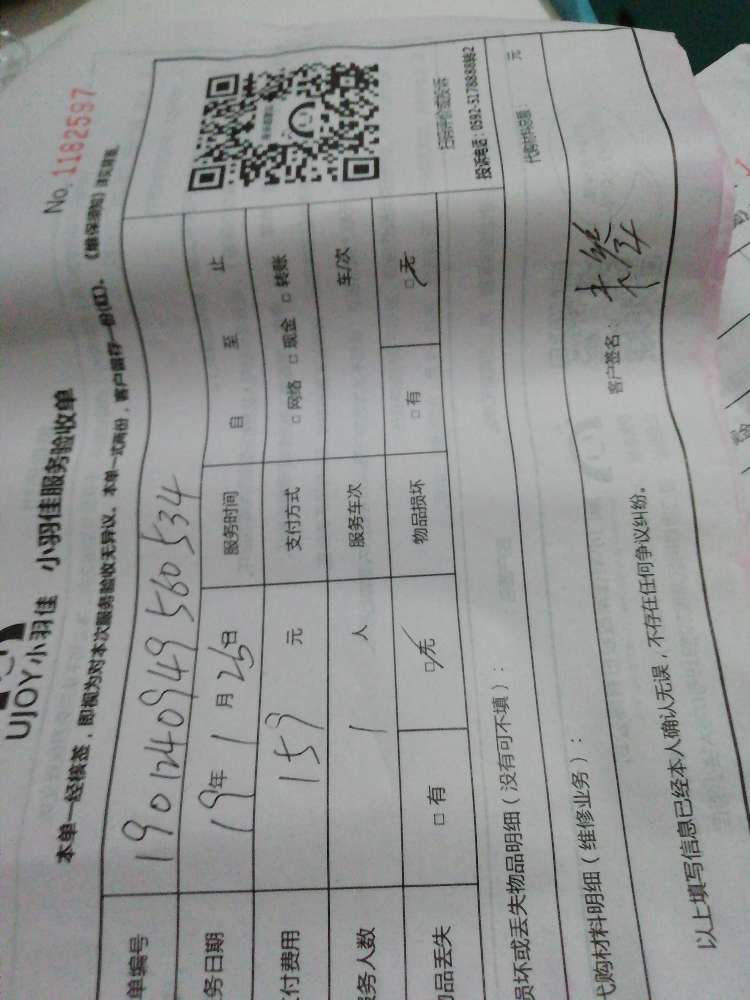 No. 11182597
UJOY小羽佳 小羽佳服务验收单
本单一经核签，即视为对本次服务验收无异议。本单一式两份，客户留存一份(红)。《维保须知》详见背面。
单编号 1901240949560534
务日期 19年1月25日 服务时间 自 至 止
付费用 159元 支付方式 □网络 □现金 □转账
务人数 1人 服务车次 车/次
品丢失 □有 □无 物品损坏 □有 □无
扫码评价或投诉
投诉电话：0592-5178888转2
损坏或丢失物品明细（没有可不填）：
代购材料明细（维修业务）： 代购材料总额： 元
以上填写信息已经本人确认无误，不存在任何争议纠纷。 客户签名：